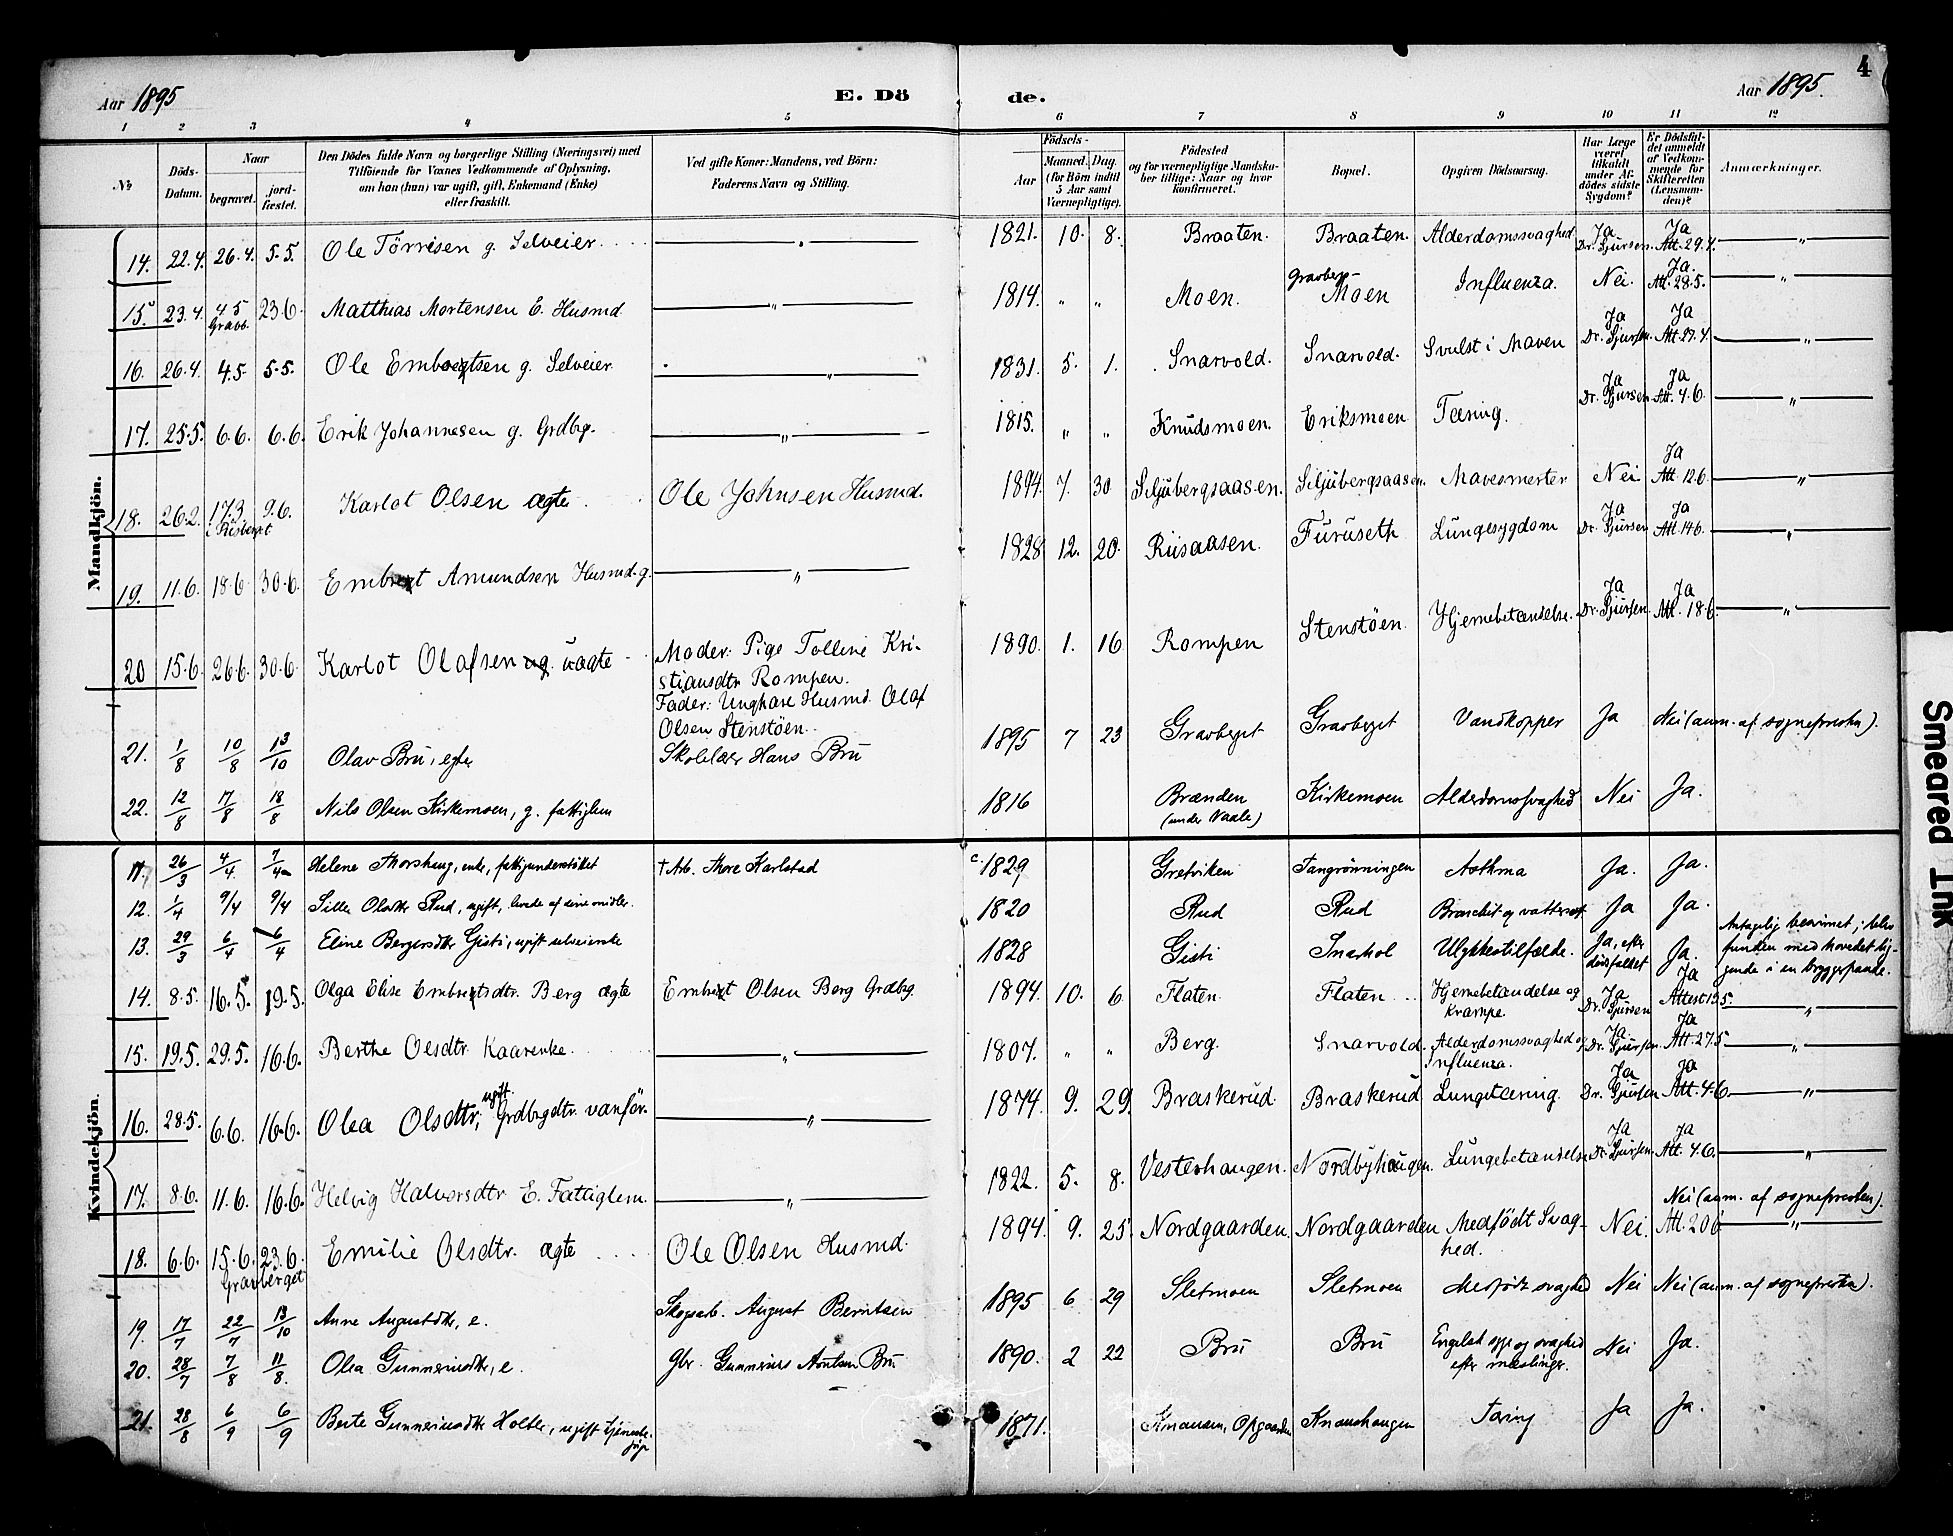 4
Aar 1895
E. Dö
de.
Aar 1895.
1 2 3 4 5 6 7 8 9 10 11 12
No
Döds-Datum.
Naar
begravet.
jord-fæstet.
Den Dödes fulde Navn og borgerlige Stilling (Næringsvei) med
Tilföiende for Voxnes Vedkommende af Oplysning,
om han (hun) var ugift, gift, Enkemand (Enke)
eller fraskilt.
Ved gifte Koner: Mandens, ved Börn:
Faderens Navn og Stilling.
Födsels-
Aar
Maaned. Dag.
(for Börn indtil
5 Aar samt
Værnepligtige).
Födested
og for værnepligtige Mandska-
ber tillige: Naar og hvor
konfirmeret.
Bopæl.
Opgiven Dödsaarsag.
Har Læge
været
tilkaldt
under Af-
dödes sidste
Sygdom?
Er Dödsfal-
det anmeldt
af Vedkom-
mende for
Skifteretten
(Lensman-
den)?
Anmærkninger.
Mandkjön.
14. 22.4. 26.4. 5.5. Ole Törrisen g. Selveier 1821. 10. 8. Braaten. Braaten. Alderdomssvaghed Ja Dr. Sjursen. Ja Att. 29.4. "
15. 23.4. 4.5 Gravb. 23.6. Matthias Mortensen E. Husmd. " 1814. " " Moen. Gravberg-Moen Influenza. Nei. Ja. Att. 28.5. "
16. 26.4. 4.5. 5.5. Ole Embretsen g. Selveier " 1831. 5. 1. Snarvold. Snarvold. Svulst i Maven Ja Dr. Sjursen. Ja Att. 27.4. "
17. 25.5. 6.6. 6.6. Erik Johannesen g. Grdbrg. " 1815. " " Knudsmoen. Eriksmoen Tæring. Ja Dr. Sjursen Ja Att. 4.6. "
18. 26.2. 17.3. i Risberget 9.6. Karlot Olsen ægte Ole Johnsen Husmd. 1894. 7. 30 Siljubergsaasen. Siljubergsaasen. Mavesmerter Nei Ja Att. 12.6. "
19. 11.6. 18.6 30.6. Embret Amundsen Husmd. g. " 1828 12. 20. Riisaasen. Furuseth Lungesygdom Ja Dr. Sjursen Ja Att. 14.6. "
20 15.6. 26.6. 30.6. Karlot Olafsen uægte Moder: Pige Tolline Kri-
stiansdtr Rompen.
Fader: Ungkare Husmd. Olaf
Olsen Stenstöen. 1890. 1. 16 Rompen Stenstöen. Hjernebetændelse. Ja Dr. Sjursen. Ja Att. 18.6. "
21. 1/8 10/8 13/10 Olav Bru, egte Skolelær Hans Bru 1895 7 23 Gravberget Gravberget Vandkopper Ja Nei (anm. af sognepresten).
22. 12/8 17/8 18/8 Nils Olsen Kirkemoen, g. fattiglem 1816 Brænden (under Vaale) Kirkemoen Alderdomssvaghed Nei Ja.
Kvindekjön.
11. 26/3 4/4 7/4 Helene Thorshaug, enke, fattigunderstöttet † Arb. Thore Karlstad c. 1829 Gretviken Tangrönningen Asthma Ja. Ja.
12. 1/4 9/4 9/4 Sille Olsdtr Rud, ugift, levede af sine midler. 1820 Rud Rud Bronchit og vattersot Ja Ja.
13. 29/3 6/4 6/4 Eline Bergersdtr Gisti, ugift 1828 Gisti Ulykkestilfælde. Ja, efter dödsfaldet Ja. Antagelig besvimet; blev
funden med hovedet lig-
gende i en bryggepande.
14. 8.5. 16.5. 19.5. Olga Elise Embretsdtr. Berg ægte Embret Olsen Berg Grdbrg. 1894. 10. 6 Flaten. Flaten Hjernebetændelse og Krampe. Ja Dr. Sjursen Ja Attest 15.5. "
15. 19.5. 29.5. 16.6. Berthe Olsdtr. Kaarenke. " 1807. " " Berg. Snarvold. Alderdomssvaghed og Influenza. Ja. Dr. Sjursen. Ja Att. 27.5 "
16. 28.5. 6.6. 16.6. Olea Olsdtr, ugift Grdbrgdtr. vanför. " 1874. 9. 29. Braskerud. Braskerud Lungetæring. Ja Dr. Sjursen Ja Att. 4.6. "
17. 8.6. 11.6. 16.6. Helvig Halvorsdtr E. Fattiglem. " 1822. 5. 8. Vesterhaugen. Nordbyhaugen. Lungebetændelse Ja Dr. Sjursen Ja Att. 4.6. "
18. 6.6. 15.6. 23.6. Gravberget Emilie Olsdtr. ægte Ole Olsen Husmd. 1894. 9. 25 Nordgaarden. Nordgaarden Medfödt Svag-
hed. Nei. Nei (anm. af sognepresten). Att. 20.6 "
19. 17/7 22/7 13/10 Anne Augustdtr, e. Skogsarb. August Berntsen 1895 6 29 Sletmoen Sletmoen Medfödt svaghed Nei Nei (anm. af sognepresten).
20. 28/7 7/8 11/8. Olea Gunneriusdtr, e. Gbr. Gunnerius Arntsen Bru 1890. 2 22 Bru Bru Engelsk syge og svaghed
efter mæslinger. Nei Ja.
21. 28/8 6/9 6/9 Berte Gunneriusdtr Holter, ugift tjeneste-
pige 1871. Knausen, Opgaarden Knaushaugen Tæring Ja Ja.
Smeared Ink